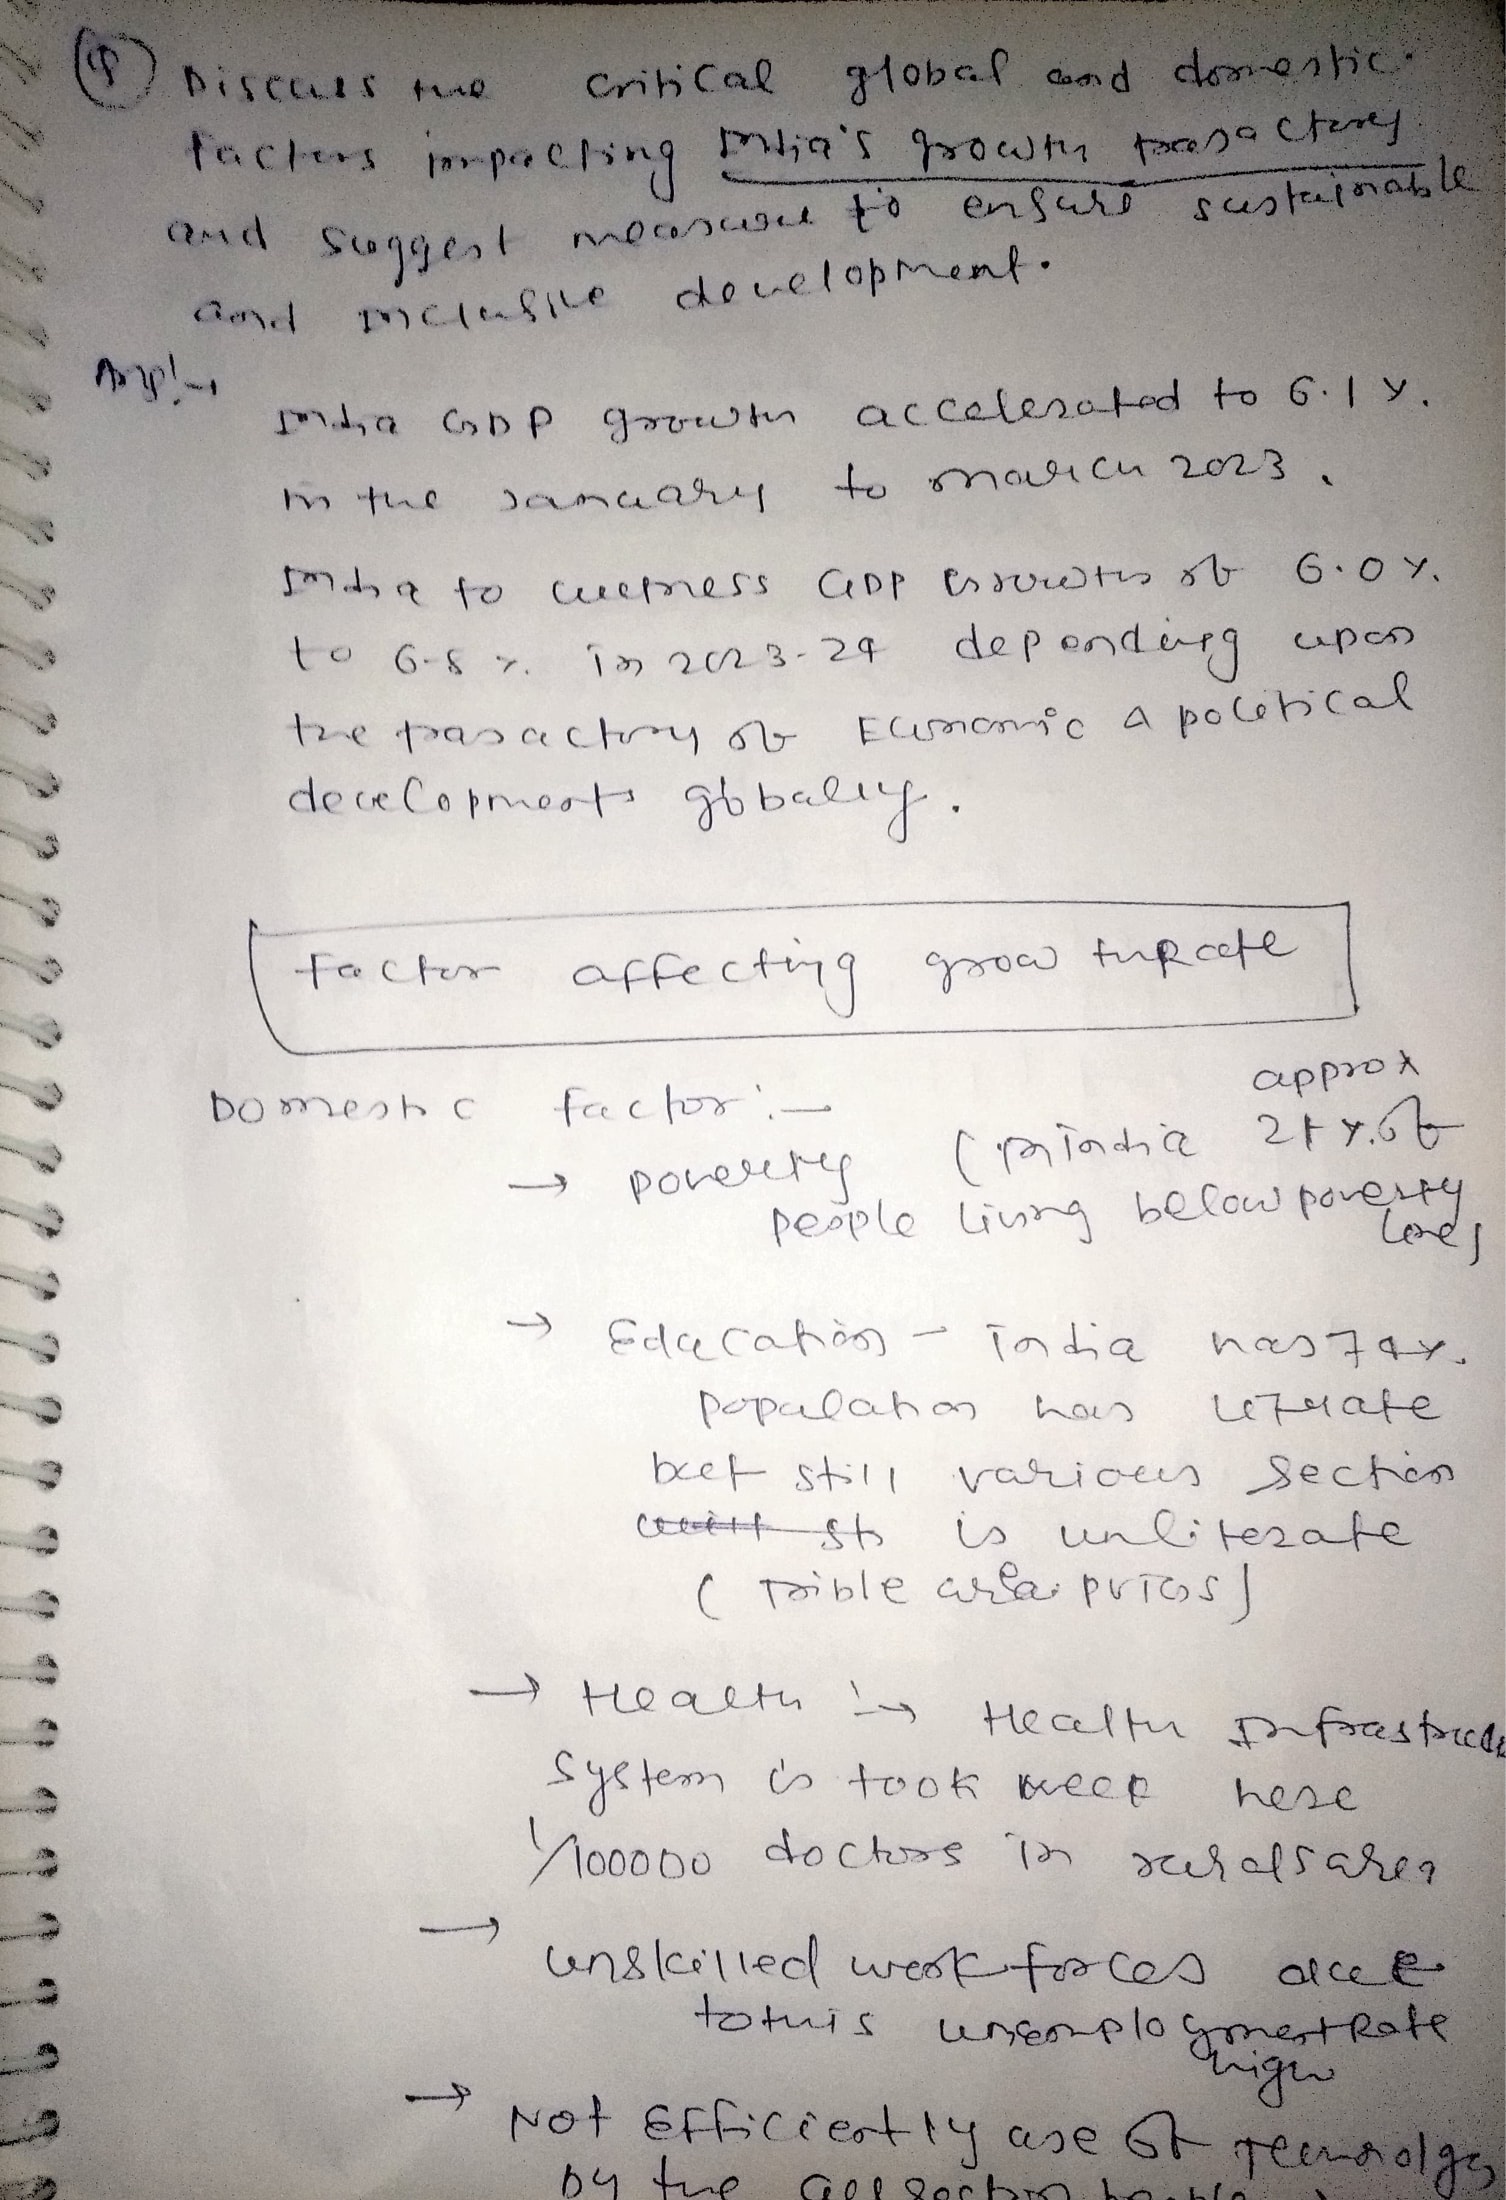 Discuss the critical global and domestic
factors impacting India's growth trajectory
and suggest measure to ensure sustainable
and inclusive development.
Ans:→
India GDP growth accelerated to 6.1 %.
in the January to march 2023.
India to witness GDP Growth of 6.0 %.
to 6.8 %. in 2023-24 depending upon
the trajactory of Economic & political
developments globally.
Factor affecting growth Rate
Domestic factor :-
approx
→ poverty (in India 21 %. of
people living below poverty
line)
→ Education - India has 74 %.
population has literate
but still various section
is unliterate
( Trible area PVTGs )
→ Health :→ Health Infrastruct
system is took week here
1/100000 doctors in rurals area
→ unskilled work forces due
to this unemploymest Rate
high
→ Not Efficiently use of Technology
by the all section